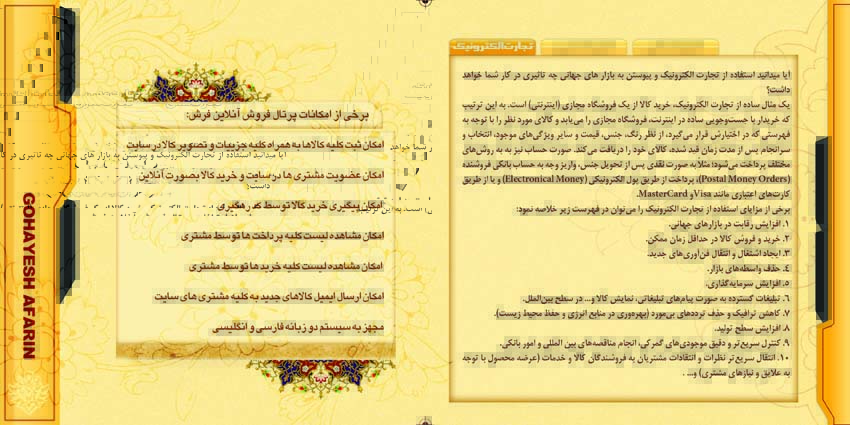 تجارت الکترونیک
آیا میدانید استفاده از تجارت الکترونیک و پیوستن به بازار های جهانی چه تاثیری در کار شما خواهد
داشت؟
یک مثال ساده از تجارت الکترونیک، خرید کالا از یک فروشگاه مجازی (اینترنتی) است. به این ترتیب
که خریدار با جست‌وجویی ساده در اینترنت، فروشگاه مجازی را می‌یابد و کالای مورد نظر را با توجه به
فهرستی که در اختیارش قرار می‌گیرد، از نظر رنگ، جنس، قیمت و سایر ویژگی‌های موجود، انتخاب و
سرانجام پس از مدت زمان قید شده، کالای خود را دریافت می‌کند. صورت حساب نیز به به روش‌های
مختلف پرداخت می‌شود؛ مثلا به صورت نقدی پس از تحویل جنس، واریز وجه به حساب بانکی فروشنده
(Postal Money Orders)، پرداخت از طریق پول الکترونیکی (Electronical Money) و یا از طریق
کارت‌های اعتباری مانند Visa و MasterCard.
برخی از مزایای استفاده از تجارت الکترونیک را می‌توان در فهرست زیر خلاصه نمود:
۱. افزایش رقابت در بازارهای جهانی.
۲. خرید و فروش کالا در حداقل زمان ممکن.
۳. ایجاد اشتغال و انتقال فن‌آوری‌های جدید.
۴. حذف واسطه‌های بازار.
۵. افزایش سرمایه‌گذاری.
۶. تبلیغات گسترده به صورت پیام‌های تبلیغاتی، نمایش کالا و... در سطح بین‌الملل.
۷. کاهش ترافیک و حذف ترددهای بی‌مورد (بهره‌وری در منابع انرژی و حفظ محیط زیست).
۸. افزایش سطح تولید.
۹. کنترل سریع‌تر و دقیق موجودی‌های گمرکی، انجام مناقصه‌های بین المللی و امور بانکی.
۱۰. انتقال سریع‌تر نظرات و انتقادات مشتریان به فروشندگان کالا و خدمات (عرضه محصول با توجه
به علایق و نیازهای مشتری) و... .
برخی از امکانات پرتال فروش آنلاین فرش:
امکان ثبت کلیه کالاها به همراه کلیه جزییات و تصویر کالا در سایت
امکان عضویت مشتری ها در سایت و خرید کالا بصورت آنلاین
امکان پیگیری خرید کالا توسط کد رهگیری
امکان مشاهده لیست کلیه پرداخت ها توسط مشتری
امکان مشاهده لیست کلیه خرید ها توسط مشتری
امکان ارسال ایمیل کالاهای جدید به کلیه مشتری های سایت
مجهز به سیستم دو زبانه فارسی و انگلیسی
GOHAYESH AFARIN